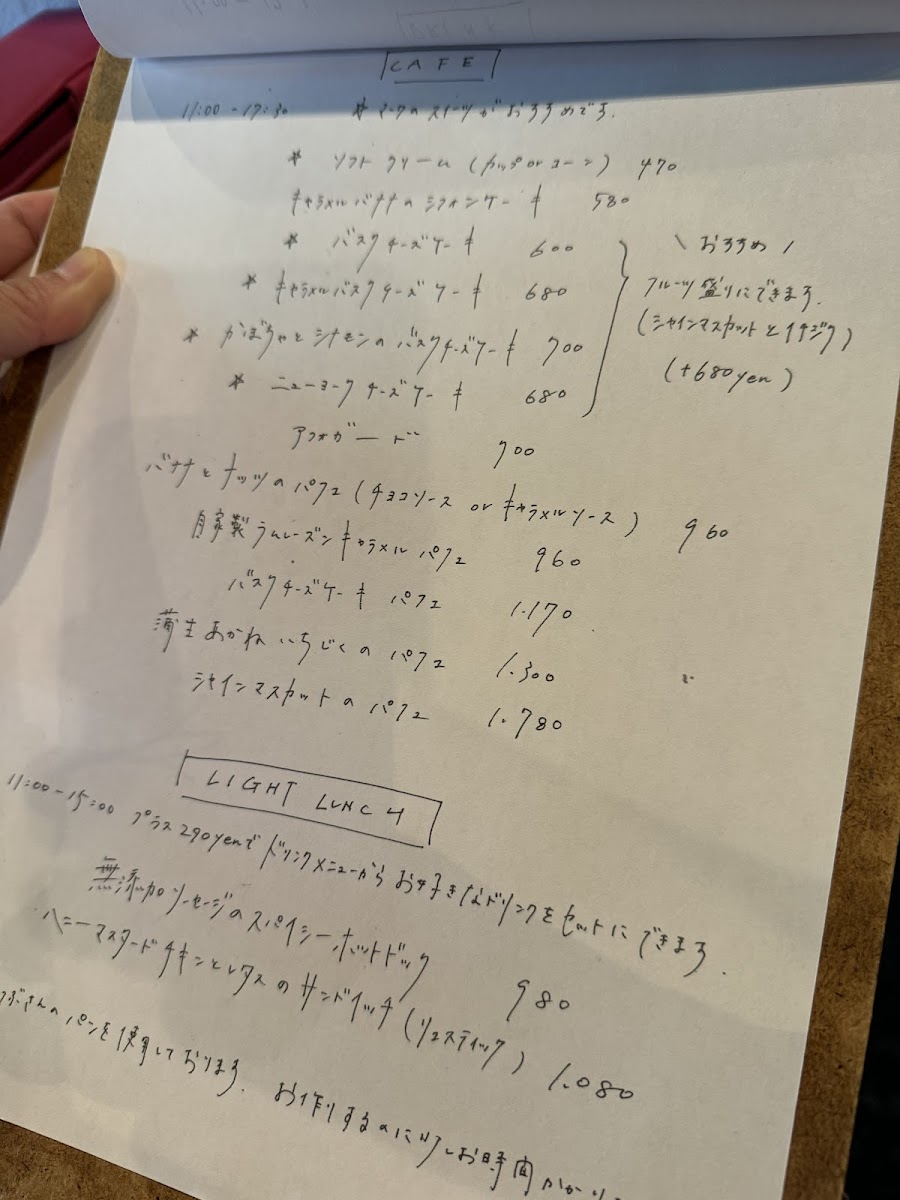 CAFE
11:00-17:30 * マークのスイーツがおすすめです.
* ソフトクリーム (カップ or コーン) 470
キャラメルバナナのシフォンケーキ 580
* バスクチーズケーキ 600
* キャラメルバスクチーズケーキ 680
* かぼちゃとシナモンのバスクチーズケーキ 700
* ニューヨークチーズケーキ 680
\ おすすめ /
フルーツ盛りにできます.
(シャインマスカットとイチジク)
(+680yen)
アフォガード 700
バナナとナッツのパフェ (チョコソース or キャラメルソース) 960
自家製ラムレーズンキャラメルパフェ 960
バスクチーズケーキパフェ 1.170
蒲生あかねいちじくのパフェ 1.300
シャインマスカットのパフェ 1.780
LIGHT LUNCH
11:00-15:00 プラス290yenでドリンクメニューからお好きなドリンクをセットにできます.
無添加ソーセージのスパイシーホットドック 980
ハニーマスタードチキンとレタスのサンドイッチ (リュスティック) 1.080
さんのパンを使用しております. お作りするのに少しお時間かかり